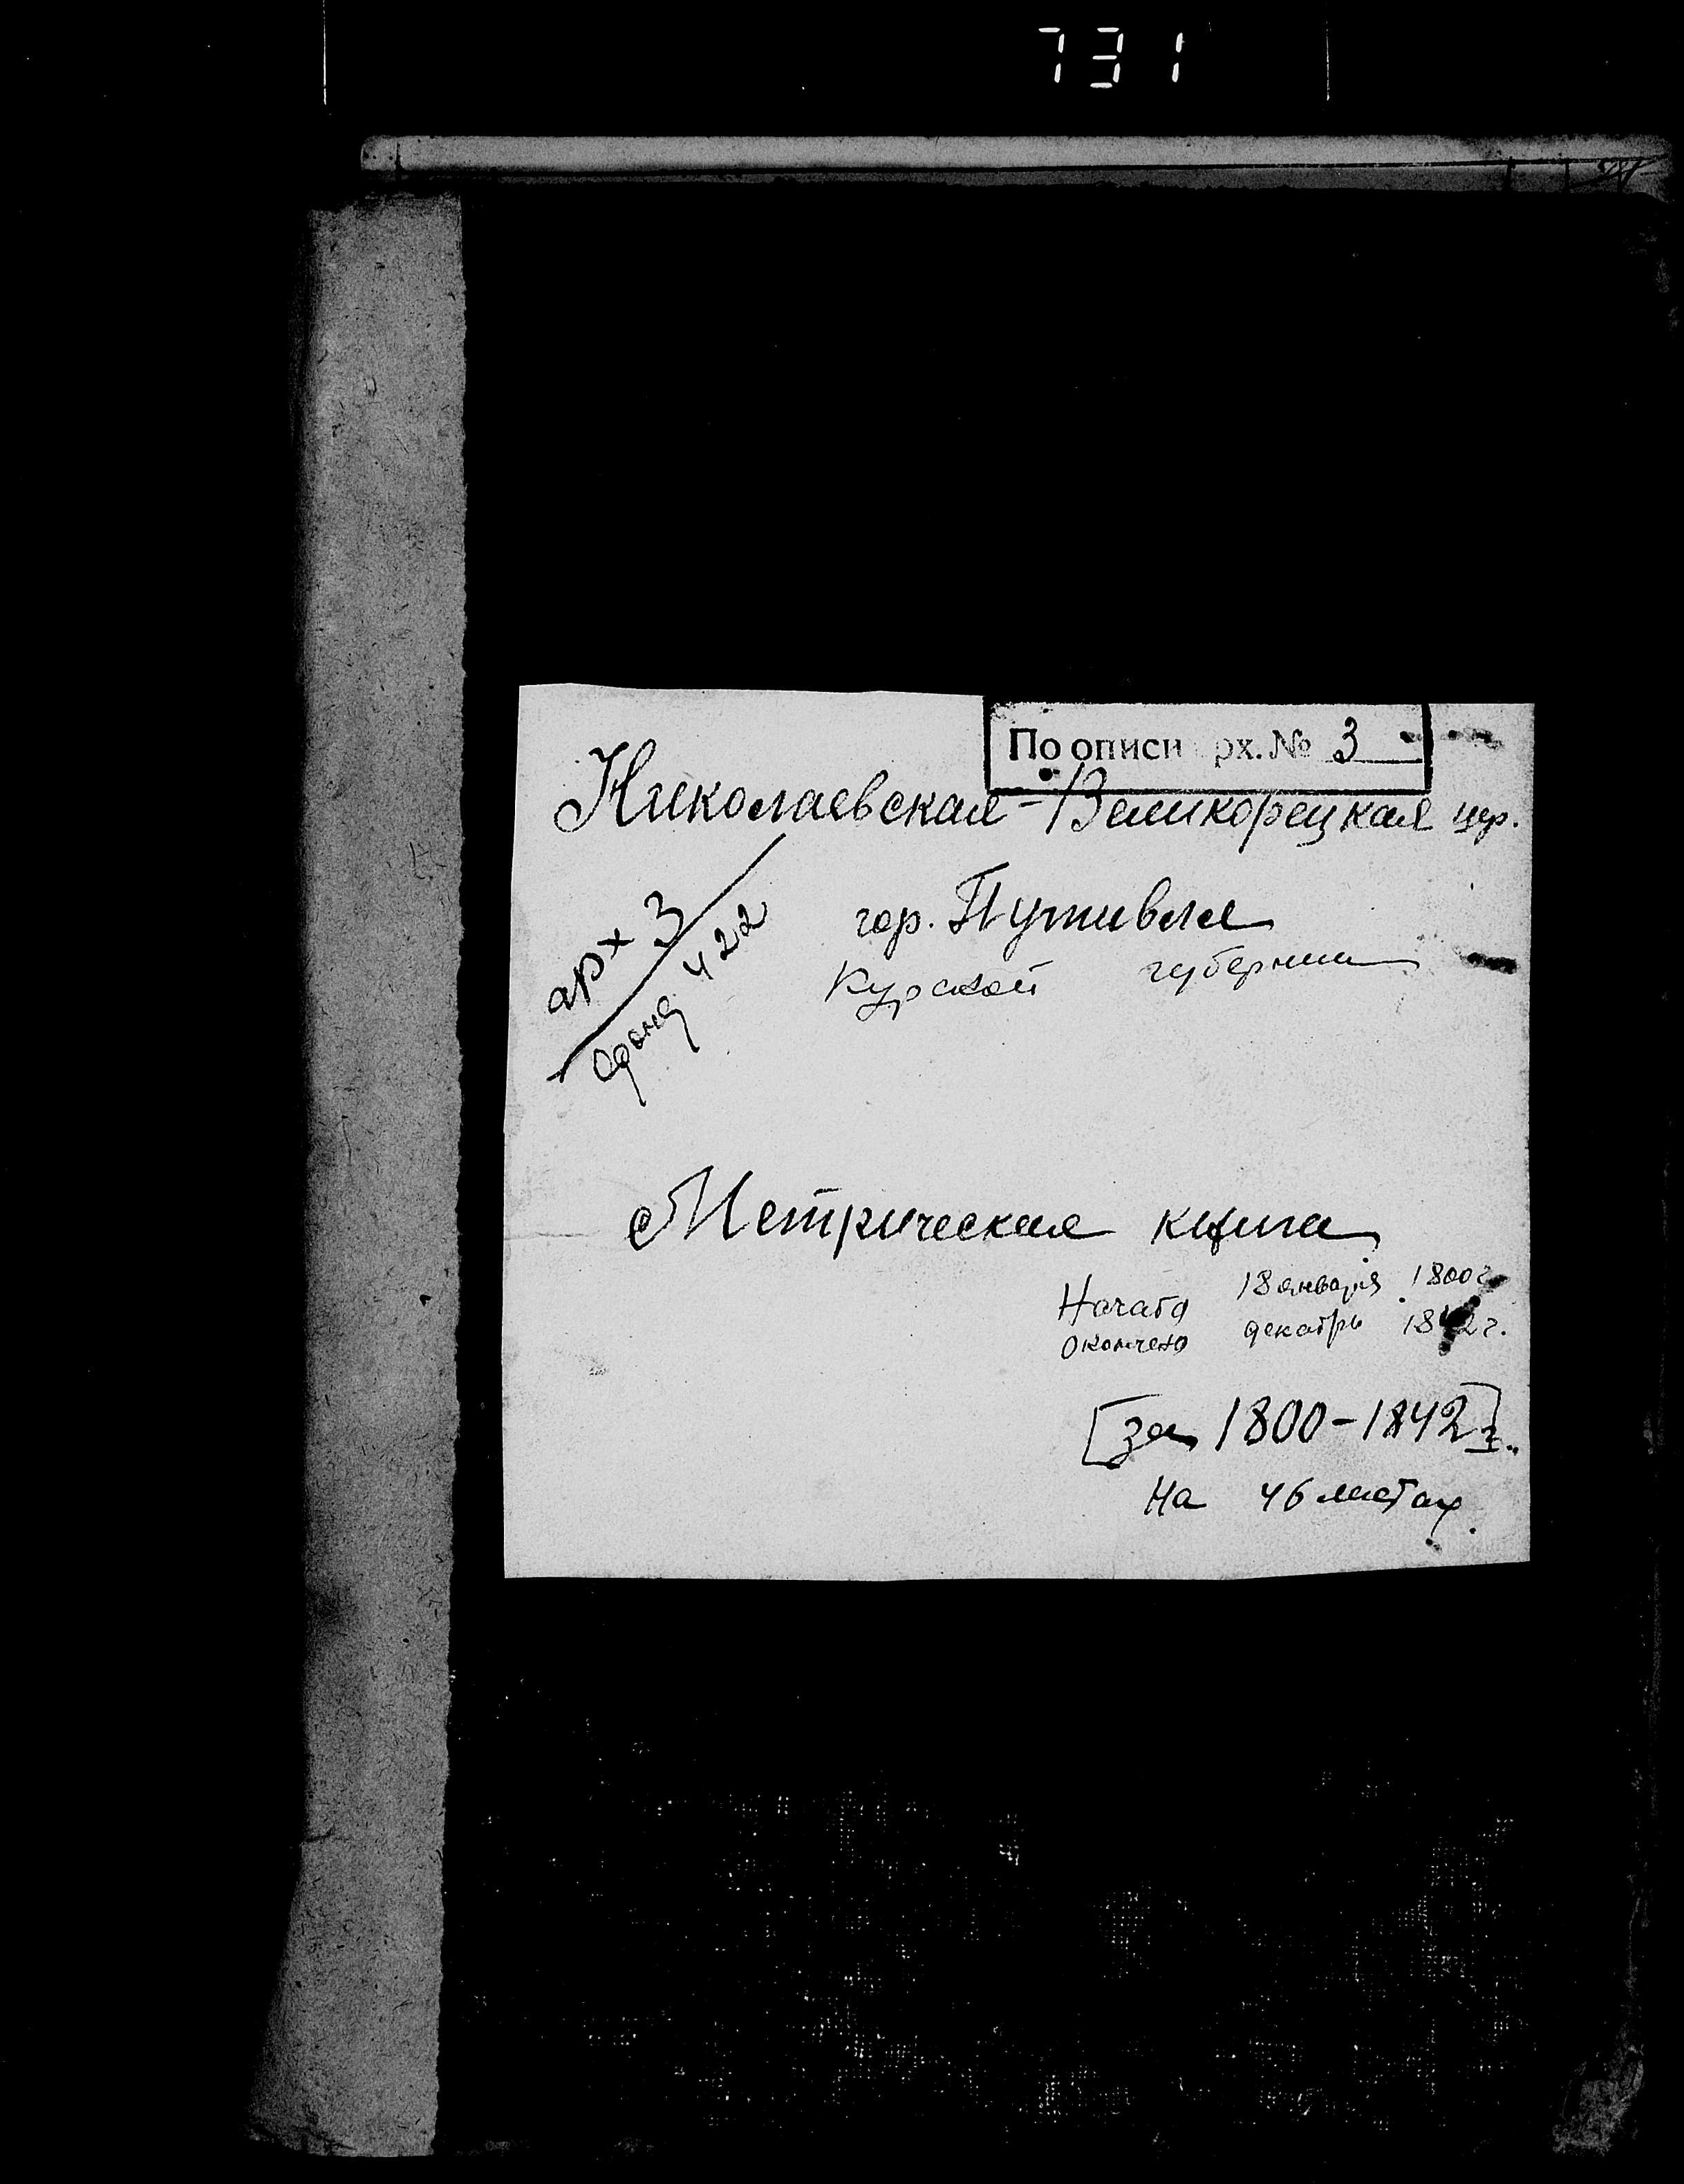 731
По описи рх. № 3
Николаевская-Великорецкая цер.
гор. Путивля
Курской губернии
арх 3
фонд 422
Метрическая книга
Начата 18 января 1800 г.
окончено декабрь 1842 г.
[за 1800-1842] г.
На 46 листах